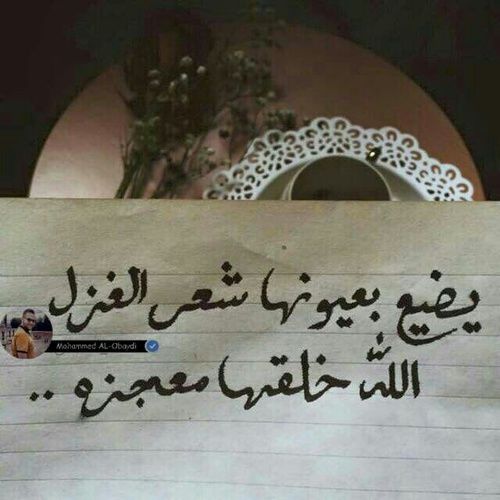 يضيع بعيونها شعر الغزل
الله خلقها معجزه ..
Mohammed AL-Obaydi